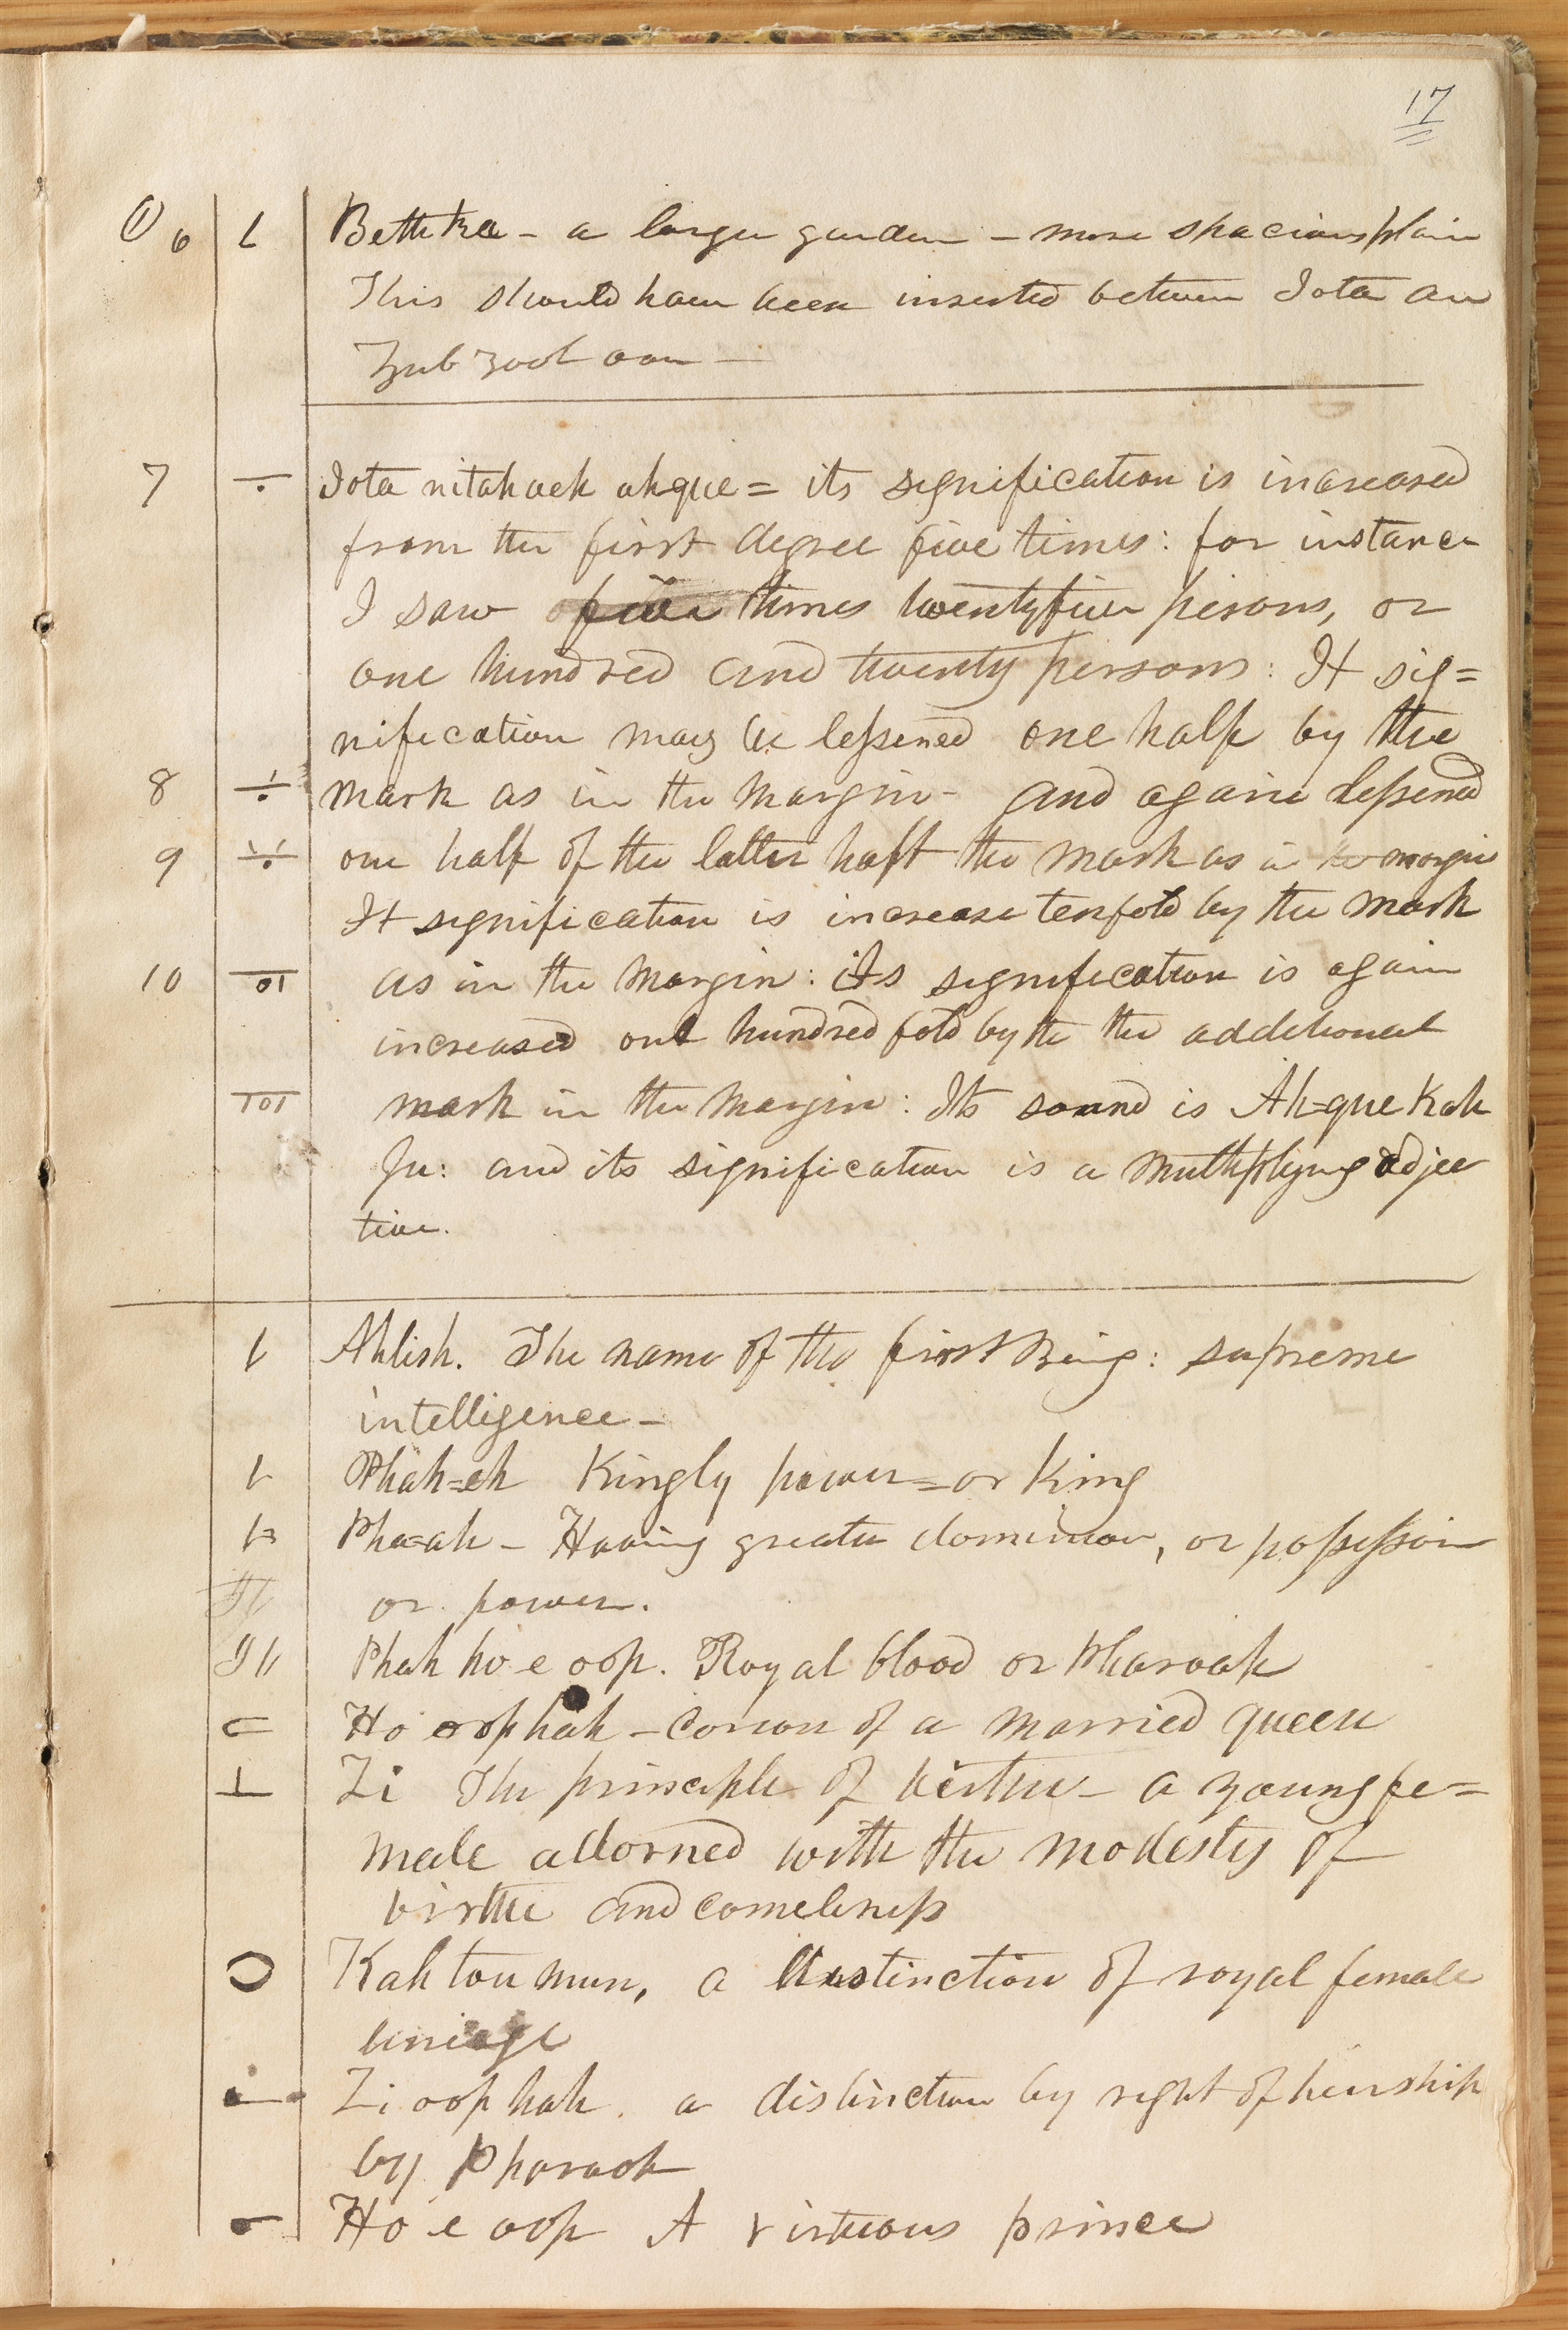 17
① 6 Bethka - a larger garden - more spacious plain
This should have been inserted between Iota an
Zub zool oan —
7 Iota nitahveh ah-que = its signification is increased
from the first degree five times: for instance
I saw five times twentyfive persons, or
one hundred and twenty persons: It sig=
nification may be lessened one half by the
8 mark as in the margin - and again lessened
9 one half of the latter haft the mark as in the margin
It signification is increase tenfold by the mark
10 as in the margin: its signification is again
increased one hundred fold by the the additional
mark in the margin: Its sound is Ah-que Kah
and its signification is a multiplying adjec
tive.
Ahlish. The name of the first Being: supreme
intelligence —
Phah=eh Kingly power = or King
Pha=ah - Having greater dominion, or possession
or power.
Phah ho e oop. Royal blood or Pharoah
Ho oop hah - Crown of a married queen
Zi The principle of virtue - a young fe=
male adorned with the modesty of
virtue and comeliness
Kah tou mun, a distinction of royal female
lineage
Zi oop hah. a distinction by right of heirship
by Pharaoh
Ho e oop A virtuous prince